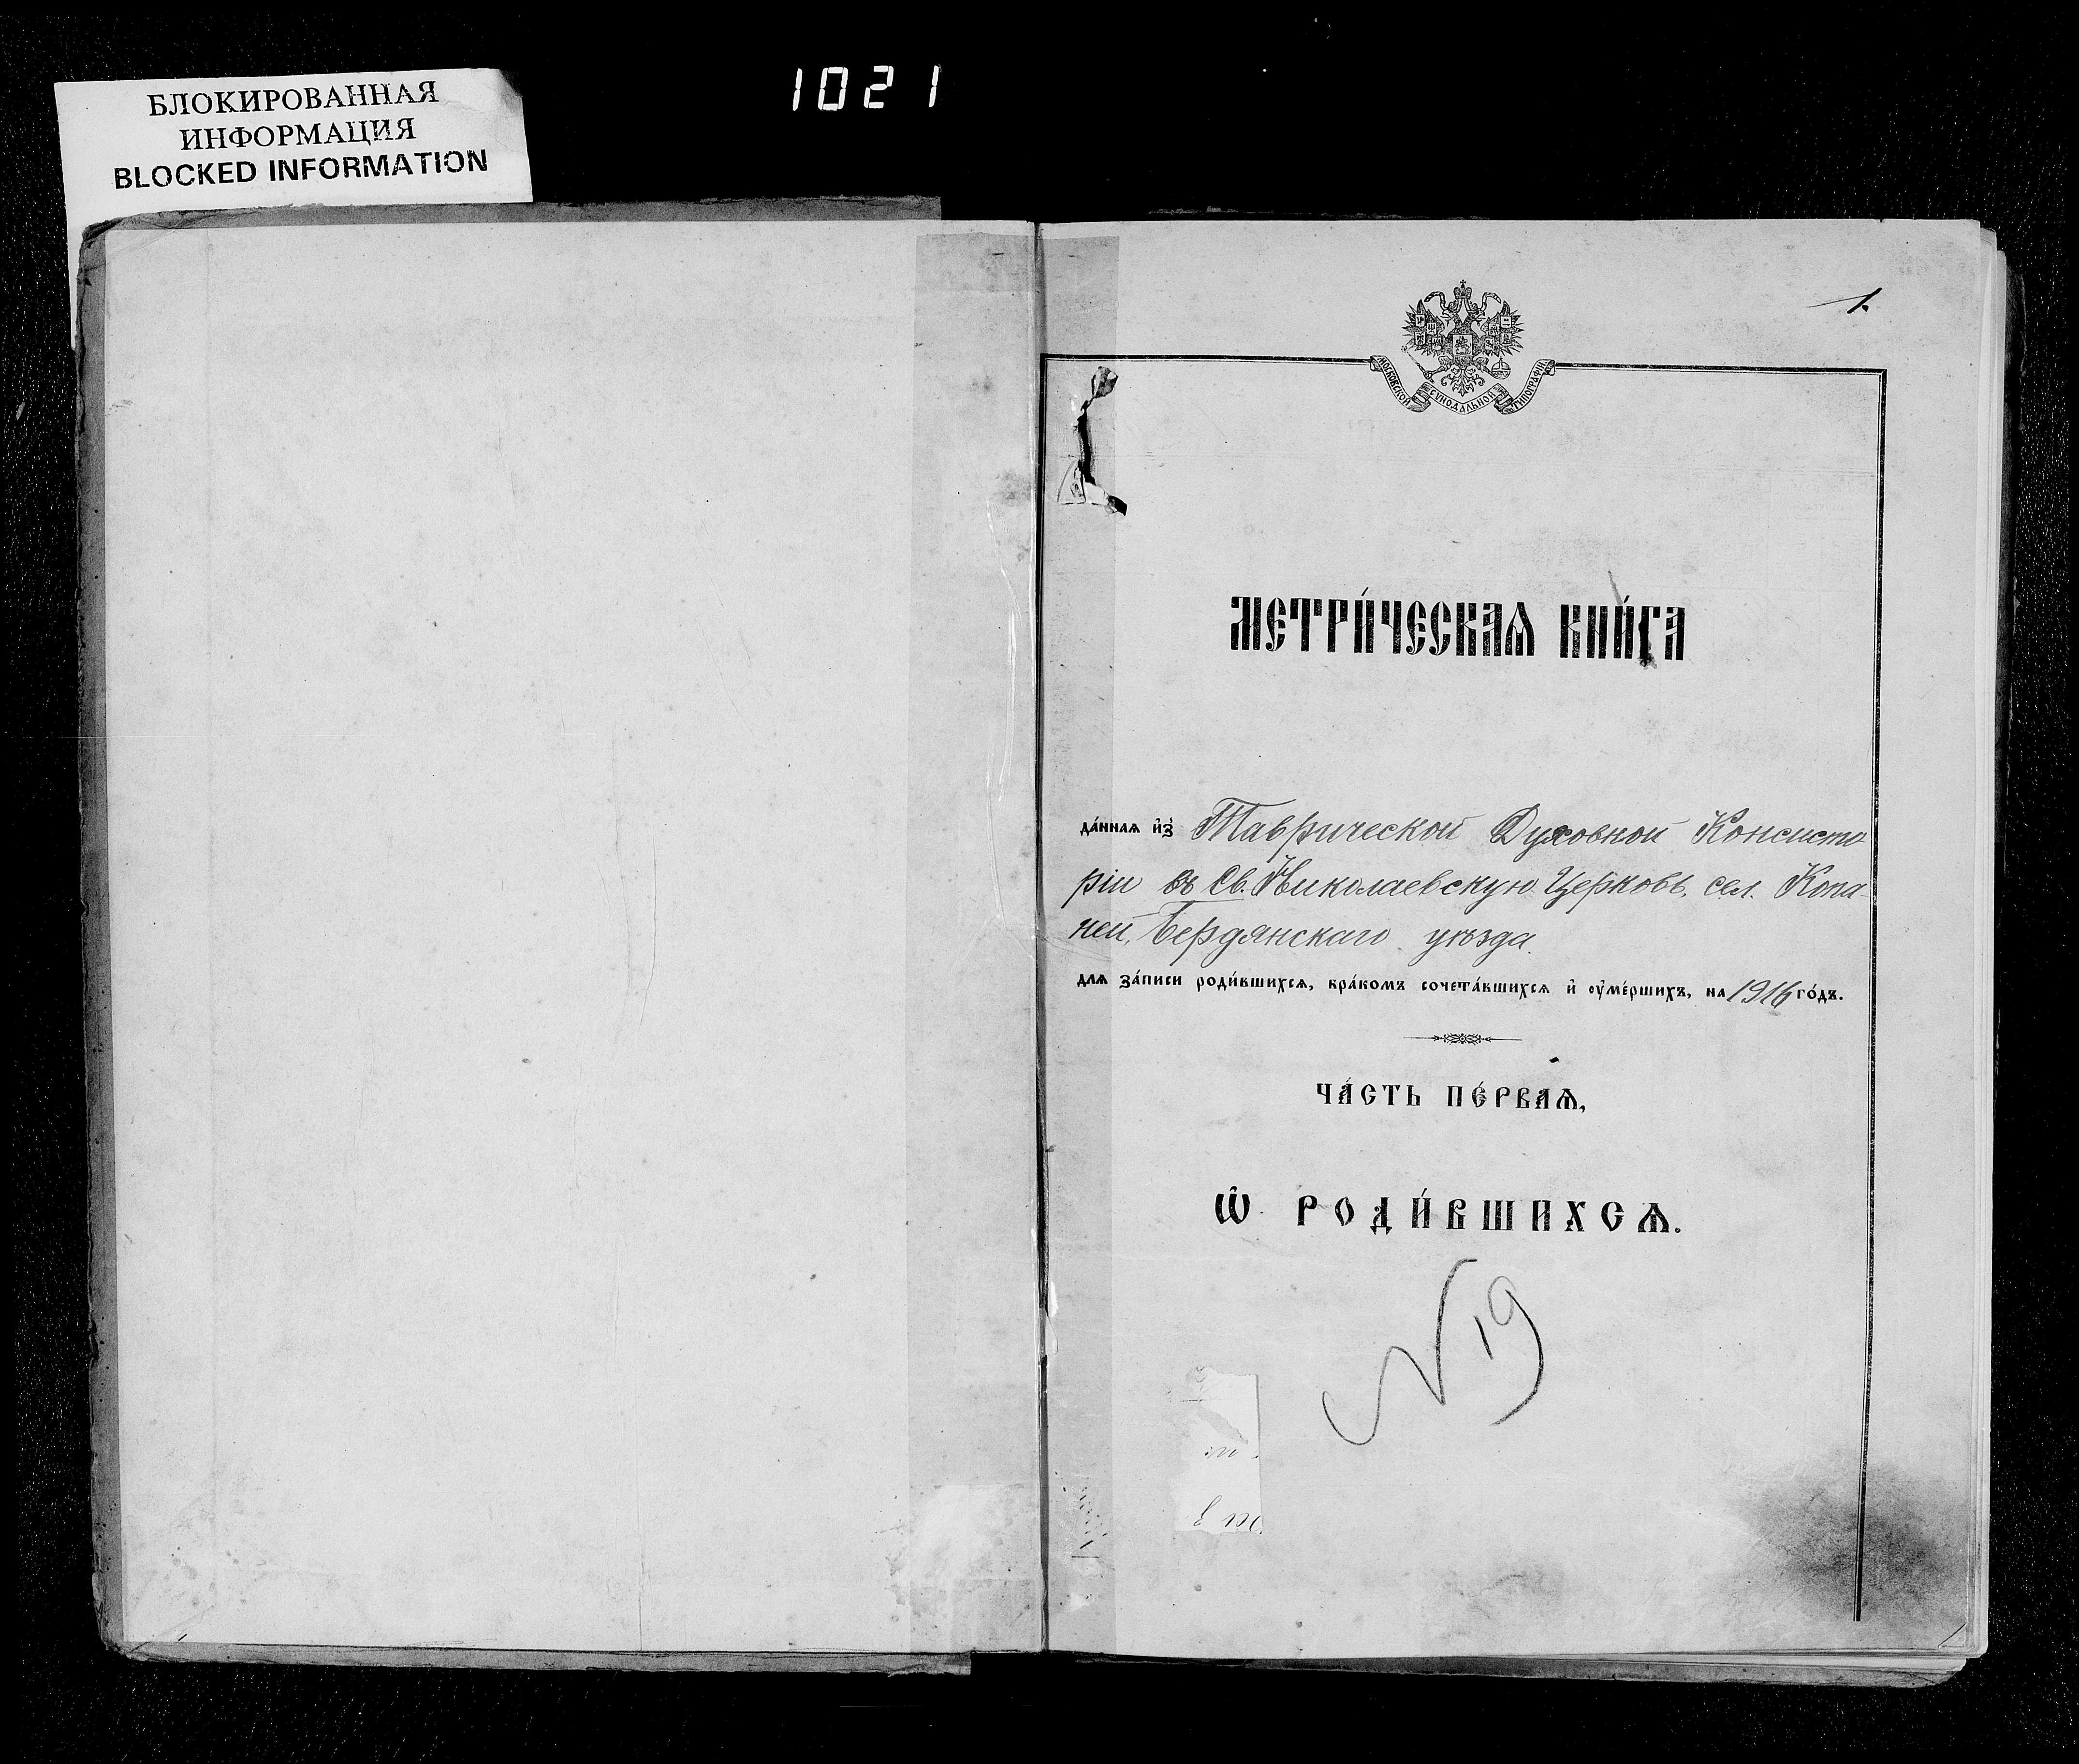 БЛОКИРОВАННАЯ
ИНФОРМАЦИЯ
BLOCKED INFORMATION
1021
1.
МОСКОВСКОЙ СѴНОДАЛЬНОЙ ТИПОГРАФІИ
МЕТРИ́ЧЕСКАѦ КНИ́ГА
да́ннаѧ и҆з̾ Таврической Духовной Консисто
ріи въ Св. Николаевскую Церковь, сел. Копа-
ней, Бердянскаго уѣзда.
длѧ за́писи роди́вшихсѧ, бра́комъ сочета́вшихсѧ и҆ ᲂу҆ме́ршихъ, на 1916 го́дъ.
ЧА́СТЬ ПЕ́РВАѦ,
Ѡ҆ РОДИ́ВШИХСѦ.
№ 19